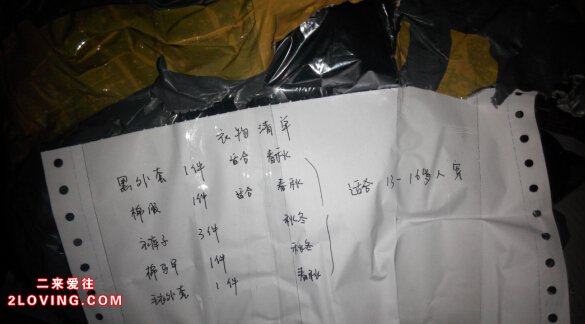 衣物清单
黑外套 1件 适合 春秋
棉服 1件 适合 春秋
裤子 3件 秋冬
棉马甲 1件 秋冬
外套 1件 春秋
适合 13-16岁人穿
二来爱往
2LOVING.COM